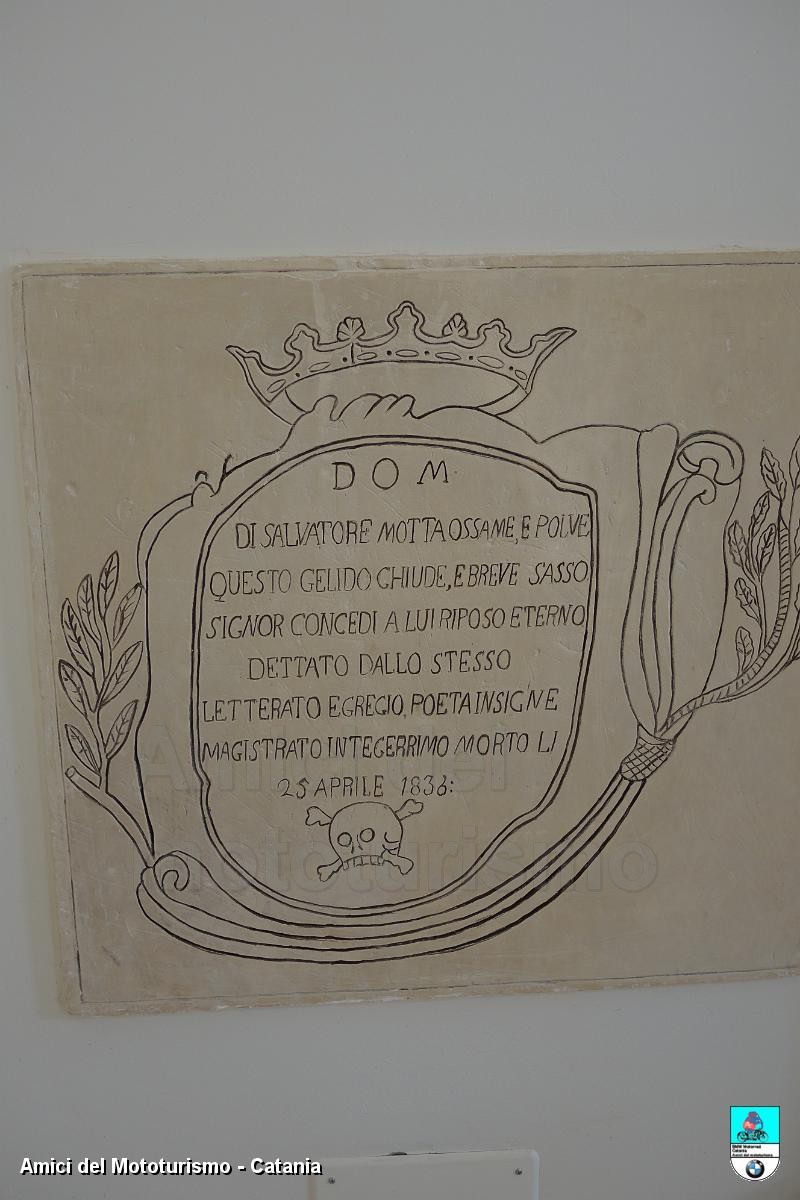 DOM
DI SALVATORE MOTTA OSSAME, E POLVE
QUESTO GELIDO CHIUDE, E BREVE SASSO
SIGNOR CONCEDI A LUI RIPOSO ETERNO
DETTATO DALLO STESSO
LETTERATO EGREGIO, POETA INSIGNE
MAGISTRATO INTEGERRIMO MORTO LI
25 APRILE 1836:
Amici del Mototurismo
Amici del Mototurismo - Catania
BMW Motorrad
Catania
Amici del mototurismo